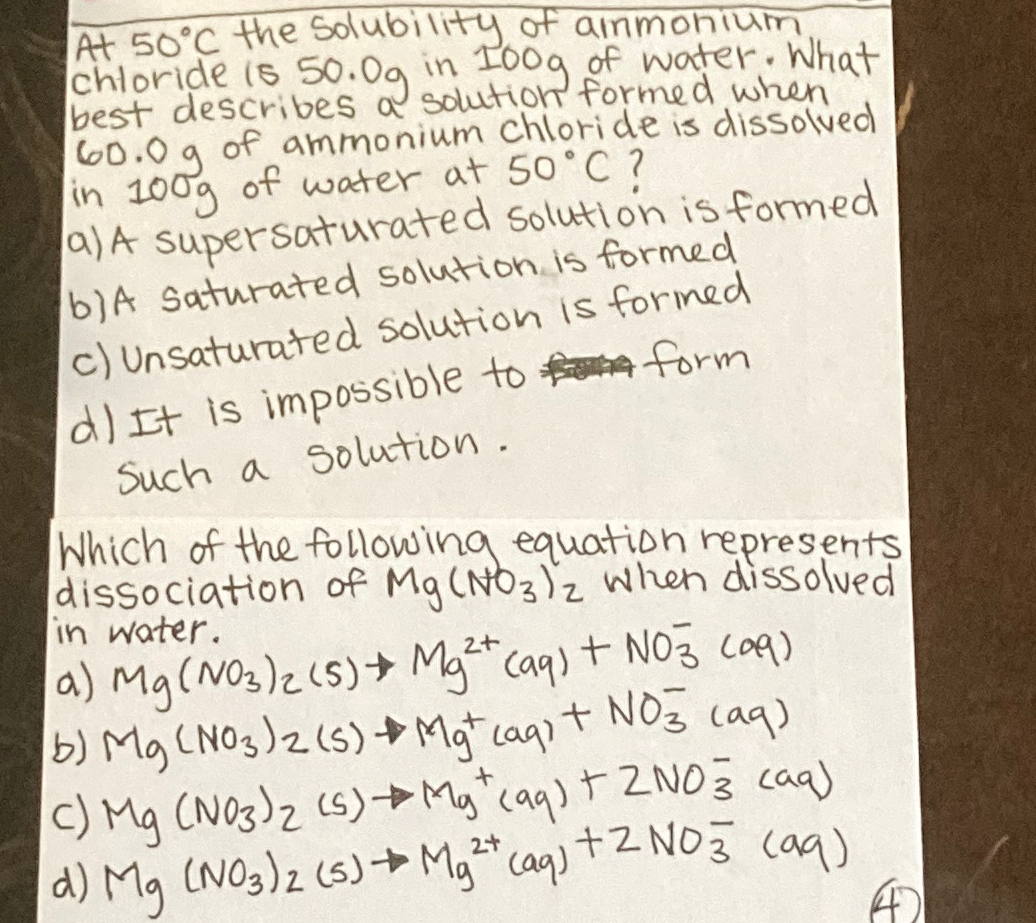 At 50°C the solubility of ammonium
chloride is 50.0g in 100g of water. What
best describes a solution formed when
60.0 g of ammonium chloride is dissolved
in 100g of water at 50°C?
a) A supersaturated solution is formed
b) A saturated solution is formed
c) Unsaturated solution is formed
d) It is impossible to form
Such a solution.
Which of the following equation represents
dissociation of Mg(NO₃)₂ when dissolved
in water.
a) Mg(NO₃)₂(s) → Mg²⁺(aq) + NO₃⁻ (aq)
b) Mg(NO₃)₂(s) → Mg⁺(aq) + NO₃⁻ (aq)
c) Mg(NO₃)₂(s) → Mg⁺(aq) + 2NO₃⁻ (aq)
d) Mg(NO₃)₂(s) → Mg²⁺(aq) + 2NO₃⁻ (aq)
4